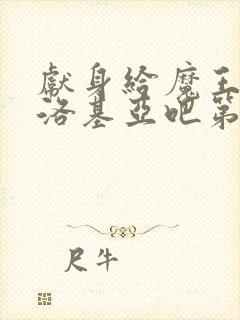 獻身給魔王
洛基亞吧第
尺牛